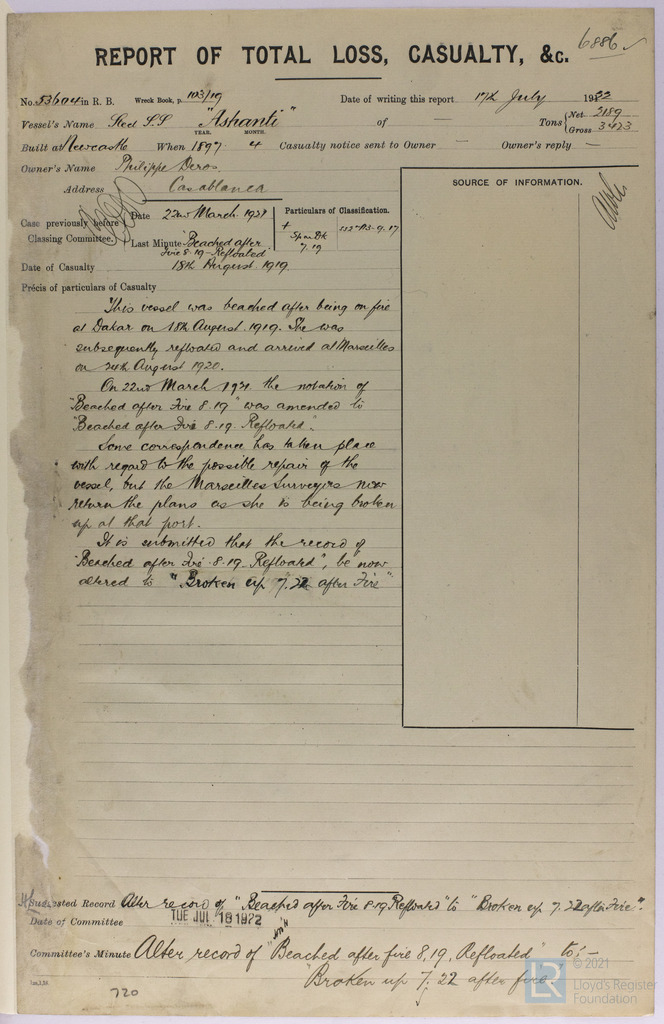 6886
REPORT OF TOTAL LOSS, CASUALTY, &c.
No. 53604 in R. B. Wreck Book, p. 103/19 Date of writing this report 17th July 1922
Vessel's Name Steel S.S "Ashanti" of — Tons { Net 2189
Gross 3423
YEAR. MONTH.
Built at Newcastle When 1897 4 Casualty notice sent to Owner — Owner's reply —
Owner's Name Philippe Deros
Address Casablanca
SOURCE OF INFORMATION.
Case previously before Classing Committee. { Date 22nd March 1921
Last Minute Beached after
Fire 8.19 - Refloated
Particulars of Classification.
Spar Dk
7.19
Date of Casualty 18th August 1919
Précis of particulars of Casualty
This vessel was beached after being on fire
at Dakar on 18th August 1919. She was
subsequently refloated and arrived at Marseilles
on 24th August 1920.
On 22nd March 1921 the notation of
"Beached after Fire 8.19" was amended to
"Beached after Fire 8.19 Refloated".
Some correspondence has taken place
with regard to the possible repair of the
vessel, but the Marseilles Surveyors now
return the plans as she is being broken
up at that port.
It is submitted that the record of
"Beached after Fire 8.19 Refloated", be now
altered to "Broken up 7.22 after Fire"
Suggested Record Alter record of "Beached after Fire 8.19 Refloated" to "Broken up 7.22 after Fire".
Date of Committee TUE JUL 18 1922
Committee's Minute Alter record of "Beached after fire 8.19, Refloated" to:-
Broken up 7.22 after fire
720
© 2021
LR Lloyd's Register
Foundation